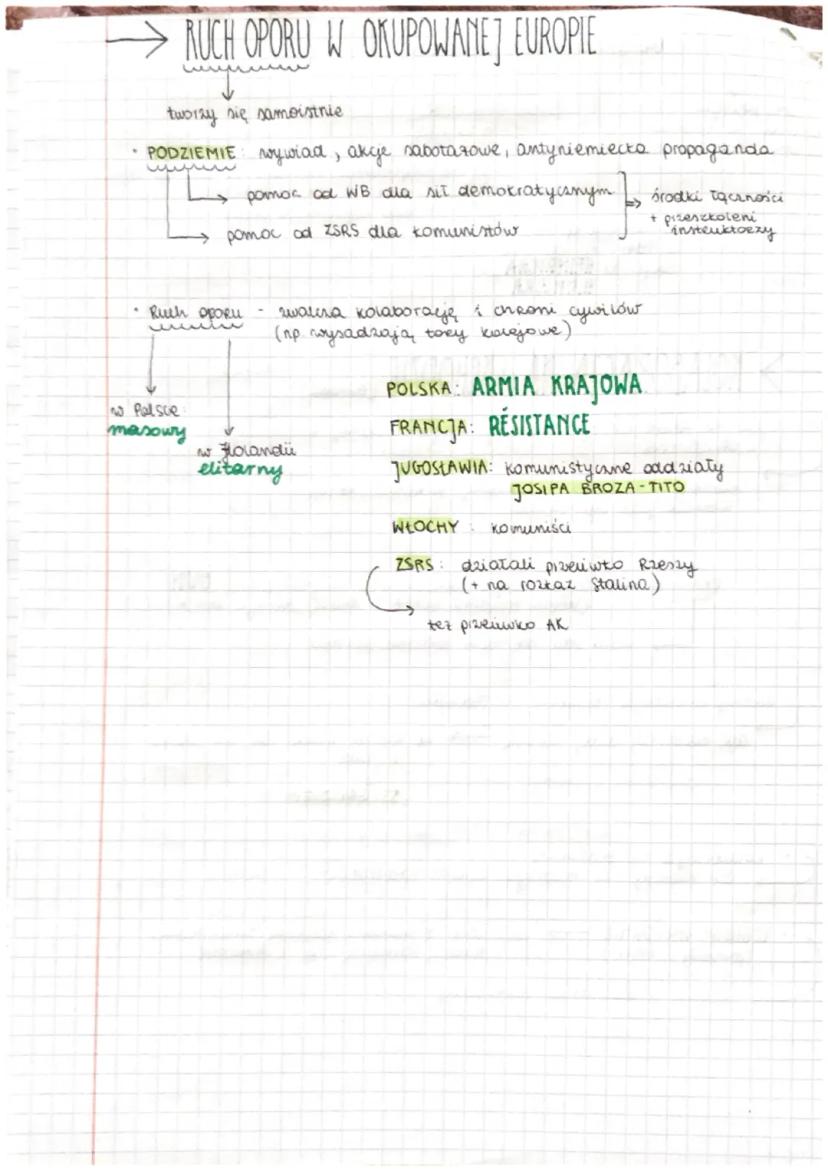 → RUCH OPORU W OKUPOWANEJ EUROPIE
tworzy się samoistnie
• PODZIEMIE: wywiad, akcje sabotażowe, antyniemiecka propaganda
→ pomoc od WB dla sił demokratycznym ⇒ środki łączności
+ przeszkoleni
instruktorzy
→ pomoc od ZSRS dla komunistów
• Ruch oporu - zwalcza kolaborację i chroni cywilów
(np. wysadzają tory kolejowe)
w Polsce:
masowy
w Holandii
elitarny
POLSKA: ARMIA KRAJOWA
FRANCJA: RÉSISTANCE
JUGOSŁAWIA: komunistyczne oddziały
JOSIPA BROZA-TITO
WŁOCHY: komuniści
ZSRS: działali przeciwko Rzeszy
(+ na rozkaz Stalina)
→ też przeciwko AK